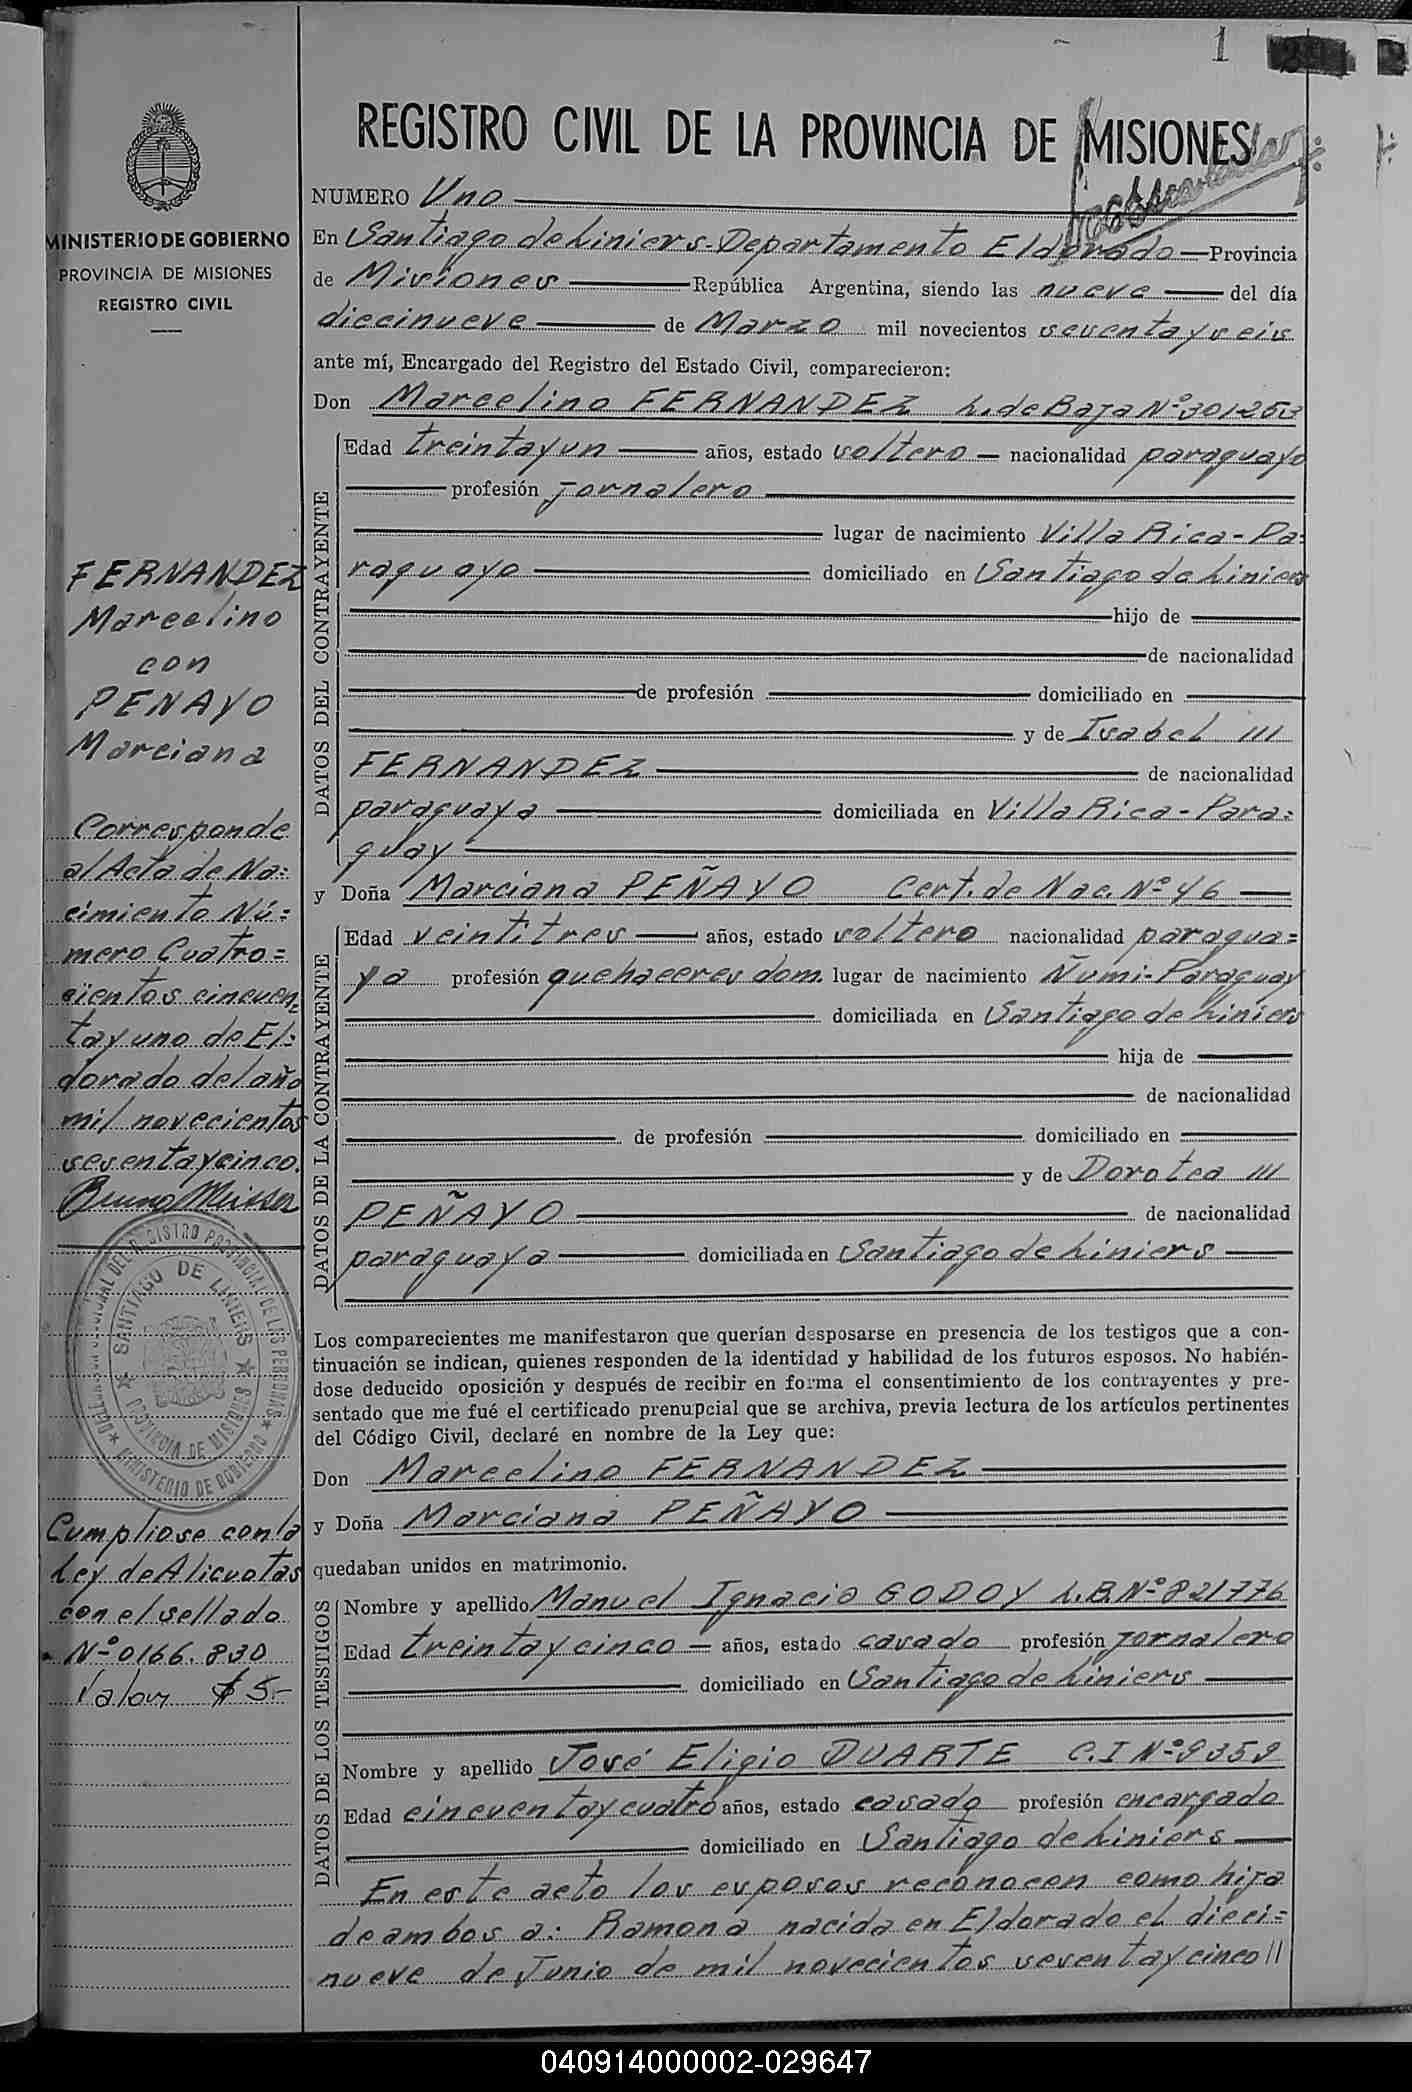 1
REGISTRO CIVIL DE LA PROVINCIA DE MISIONES
NUMERO Uno
En Santiago de Liniers - Departamento Eldorado Provincia
de Misiones República Argentina, siendo las nueve del día
diecinueve de Marzo mil novecientos sesenta y seis
ante mí, Encargado del Registro del Estado Civil, comparecieron:
Don Marcelino FERNANDEZ L. de Baja Nº 301253
Edad treinta y un años, estado soltero nacionalidad paraguayo
profesión jornalero
lugar de nacimiento Villa Rica - Pa=
raguayo domiciliado en Santiago de Liniers
hijo de
de nacionalidad
de profesión domiciliado en
y de Isabel
FERNANDEZ de nacionalidad
paraguaya domiciliada en Villa Rica - Para=
guay
y Doña Marciana PEÑAYO Cert. de Nac. Nº 46
Edad veintitres años, estado soltero nacionalidad paragua=
ya profesión quehaceres dom. lugar de nacimiento Ñumi - Paraguay
domiciliada en Santiago de Liniers
hija de
de nacionalidad
de profesión domiciliado en
y de Dorotea
PEÑAYO de nacionalidad
paraguaya domiciliada en Santiago de Liniers
DATOS DEL CONTRAYENTE
DATOS DE LA CONTRAYENTE
Los comparecientes me manifestaron que querían desposarse en presencia de los testigos que a con-
tinuación se indican, quienes responden de la identidad y habilidad de los futuros esposos. No habién-
dose deducido oposición y después de recibir en forma el consentimiento de los contrayentes y pre-
sentado que me fué el certificado prenupcial que se archiva, previa lectura de los artículos pertinentes
del Código Civil, declaré en nombre de la Ley que:
Don Marcelino FERNANDEZ
y Doña Marciana PEÑAYO
quedaban unidos en matrimonio.
Nombre y apellido Manuel Ignacio GODOY L.B. Nº 821776
Edad treinta y cinco años, estado casado profesión jornalero
domiciliado en Santiago de Liniers
Nombre y apellido José Eligio DUARTE C.I Nº 9359
Edad cincuenta y cuatro años, estado casado profesión encargado
domiciliado en Santiago de Liniers
DATOS DE LOS TESTIGOS
En este acto los esposos reconocen como hija
de ambos a: Ramona nacida en Eldorado el dieci=
nueve de Junio de mil novecientos sesenta y cinco
MINISTERIO DE GOBIERNO
PROVINCIA DE MISIONES
REGISTRO CIVIL
FERNANDEZ
Marcelino
con
PENAYO
Marciana
Corresponde
al Acta de Na=
cimiento Nú=
mero Cuatro=
cientos cincuen=
ta y uno de El=
dorado del año
mil novecientos
sesenta y cinco.
SANTIAGO DE LINIERS
PROVINCIA DE MISIONES
MINISTERIO DE GOBIERNO
Cumpliose con la
Ley de Alicuotas
con el sellado
Nº 0166.830
Valor $ 5.-
040914000002-029647